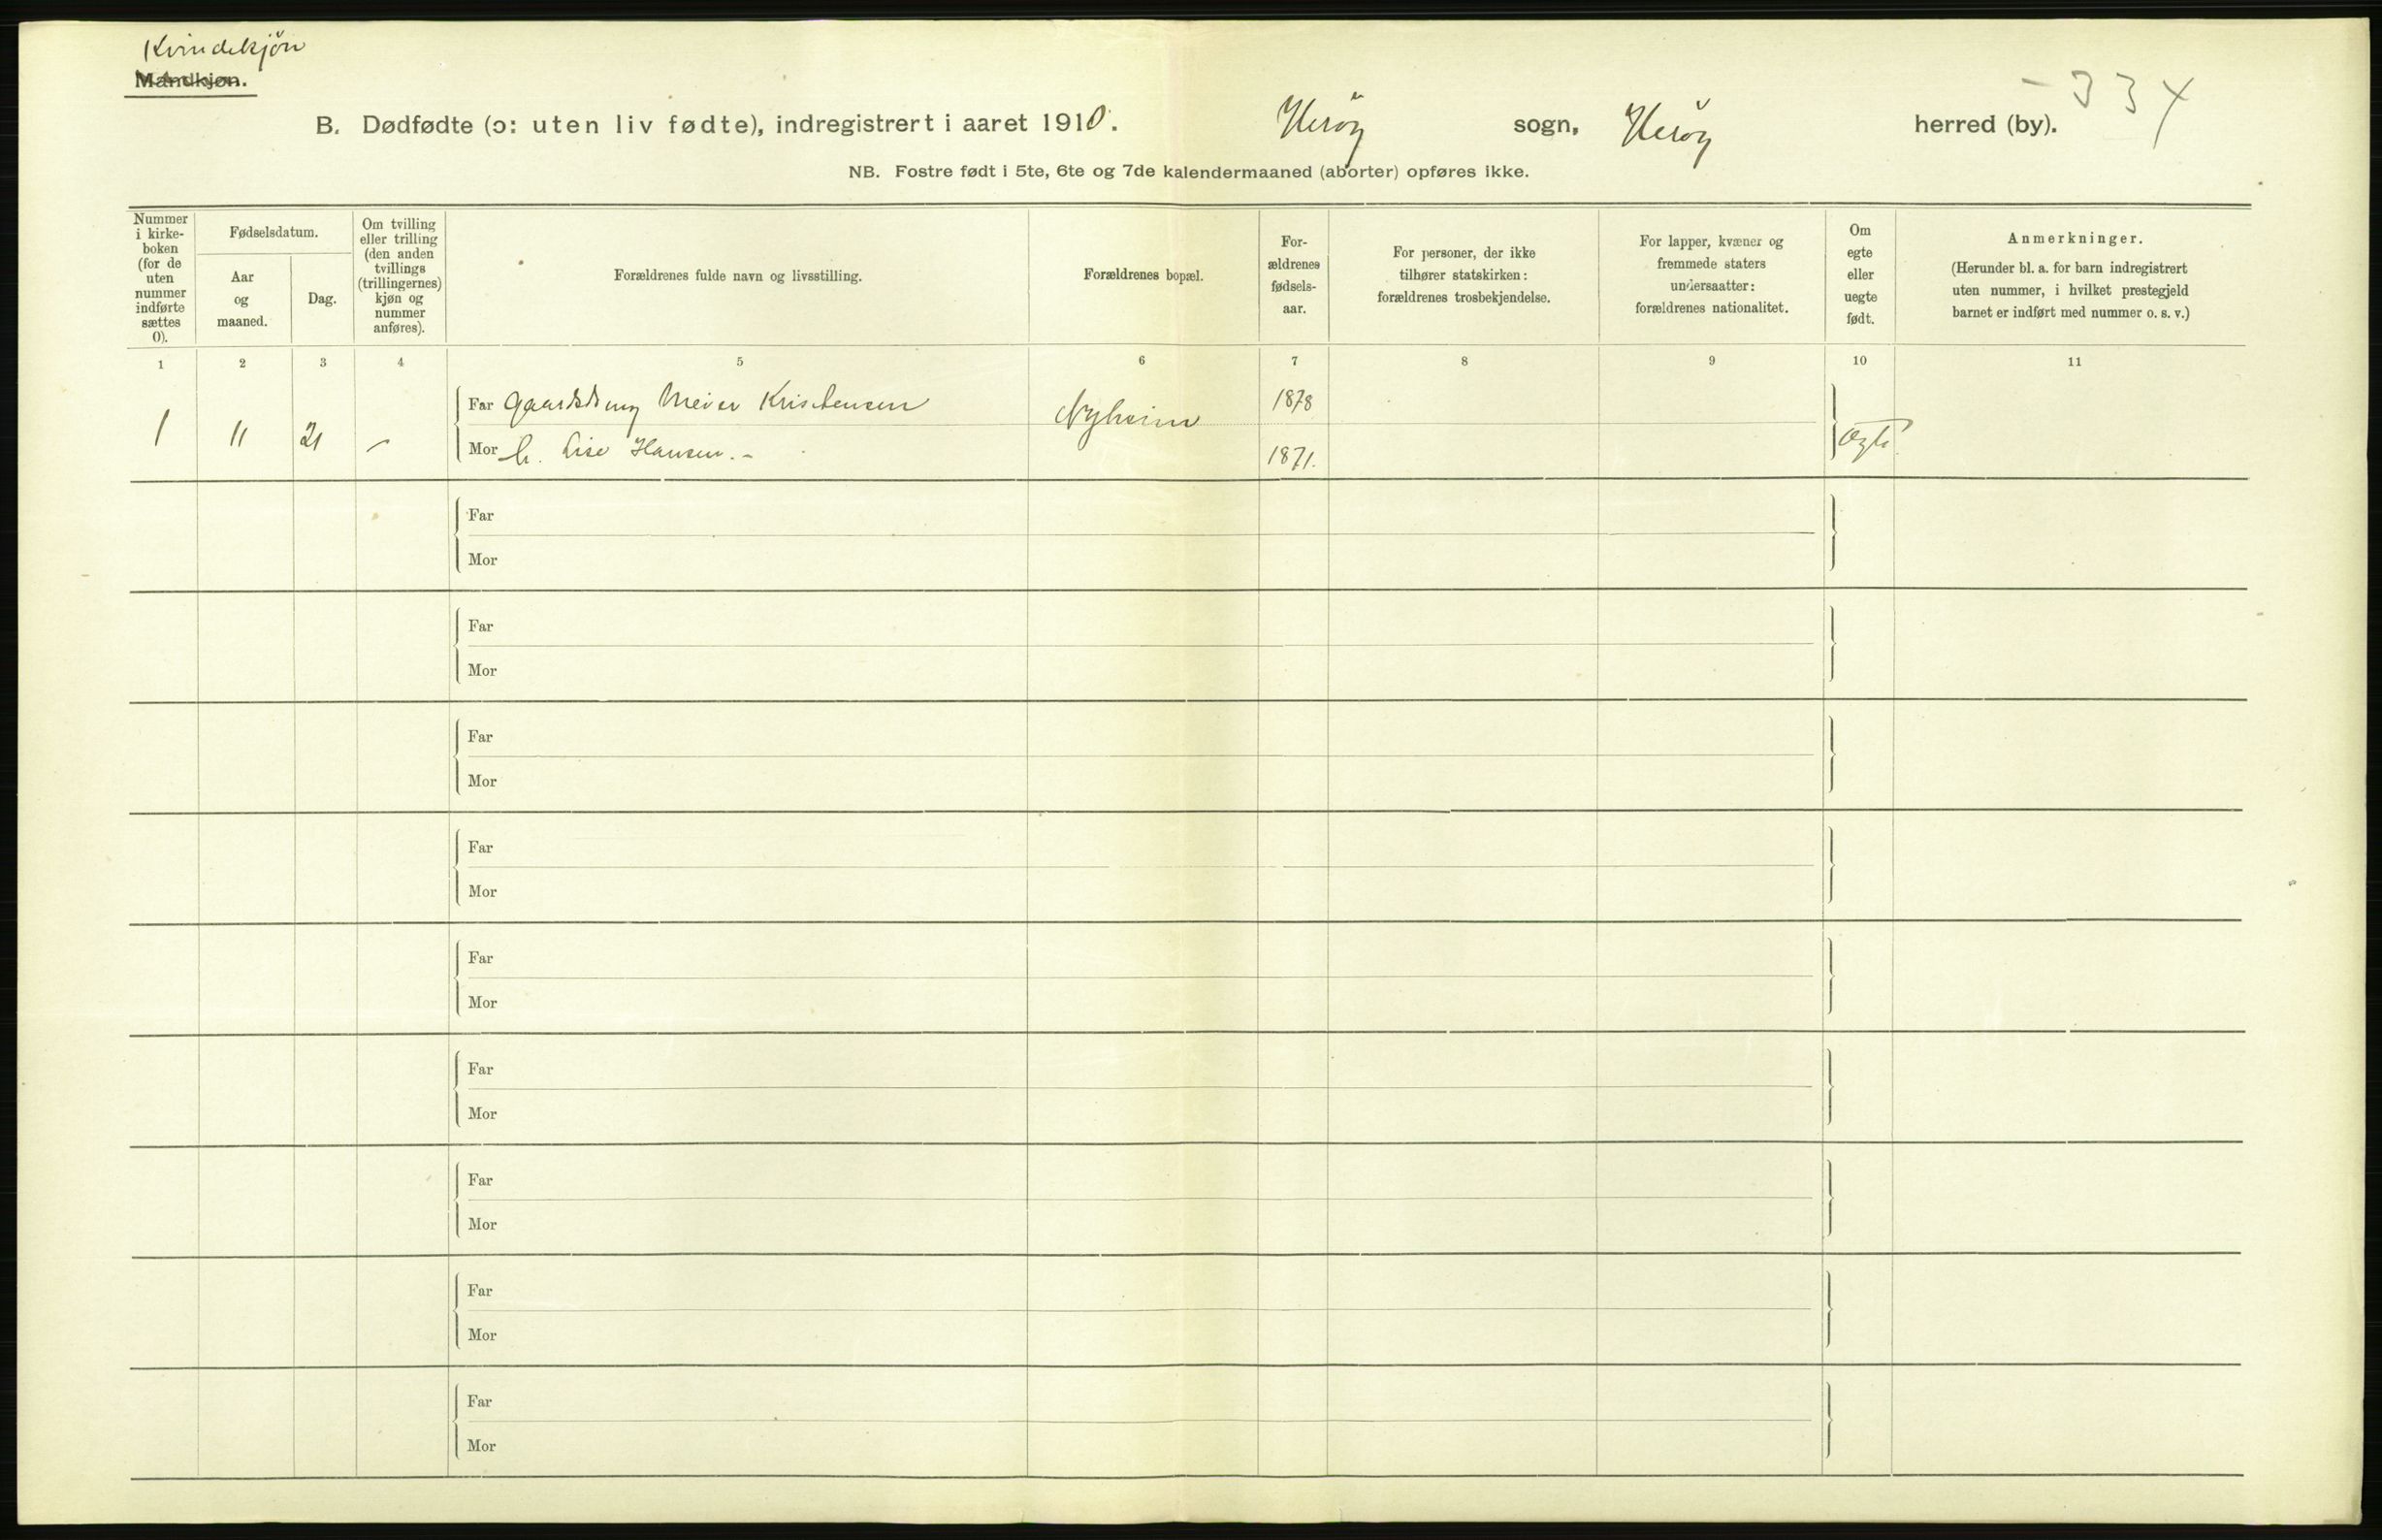 Kvindekjön
Mandkjøn.
- 334
B. Dødfødte (ɔ: uten liv fødte), indregistrert i aaret 1910. Herøy sogn, Herøy herred (by).
NB. Fostre født i 5te, 6te og 7de kalendermaaned (aborter) opføres ikke.
Nummer i kirke- boken (for de uten nummer indførte sættes 0).
Fødselsdatum.
Aar og maaned.
Dag.
Om tvilling eller trilling (den anden tvillings (trillingernes) kjøn og nummer anføres).
Forældrenes fulde navn og livsstilling.
Forældrenes bopæl.
For- ældrenes fødsels- aar.
For personer, der ikke tilhører statskirken: forældrenes trosbekjendelse.
For lapper, kvæner og fremmede staters undersaatter: forældrenes nationalitet.
Om egte eller uegte født.
Anmerkninger.
(Herunder bl. a. for barn indregistrert uten nummer, i hvilket prestegjeld barnet er indført med nummer o. s. v.)
1 2 3 4 5 6 7 8 9 10 11
Far Meier Kristensen Nyheim 1878
1 11 21 - Ægte
Mor h. Lise Hansen. - 1871.
Far
Mor
Far
Mor
Far
Mor
Far
Mor
Far
Mor
Far
Mor
Far
Mor
Far
Mor
Far
Mor